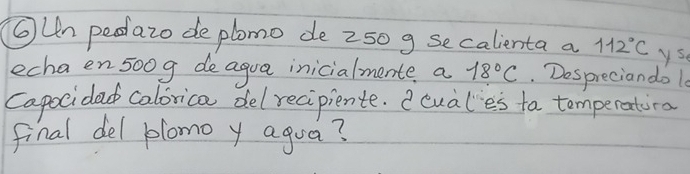 ⑥ Un pedazo de plomo de 250 g se calienta a 112°C y se
echa en 500g de agua inicialmente a 18°C. Despreciando l
Capocidad Calórica del recipiente. ¿cuál es ta temperatura
final del plomo y agua?